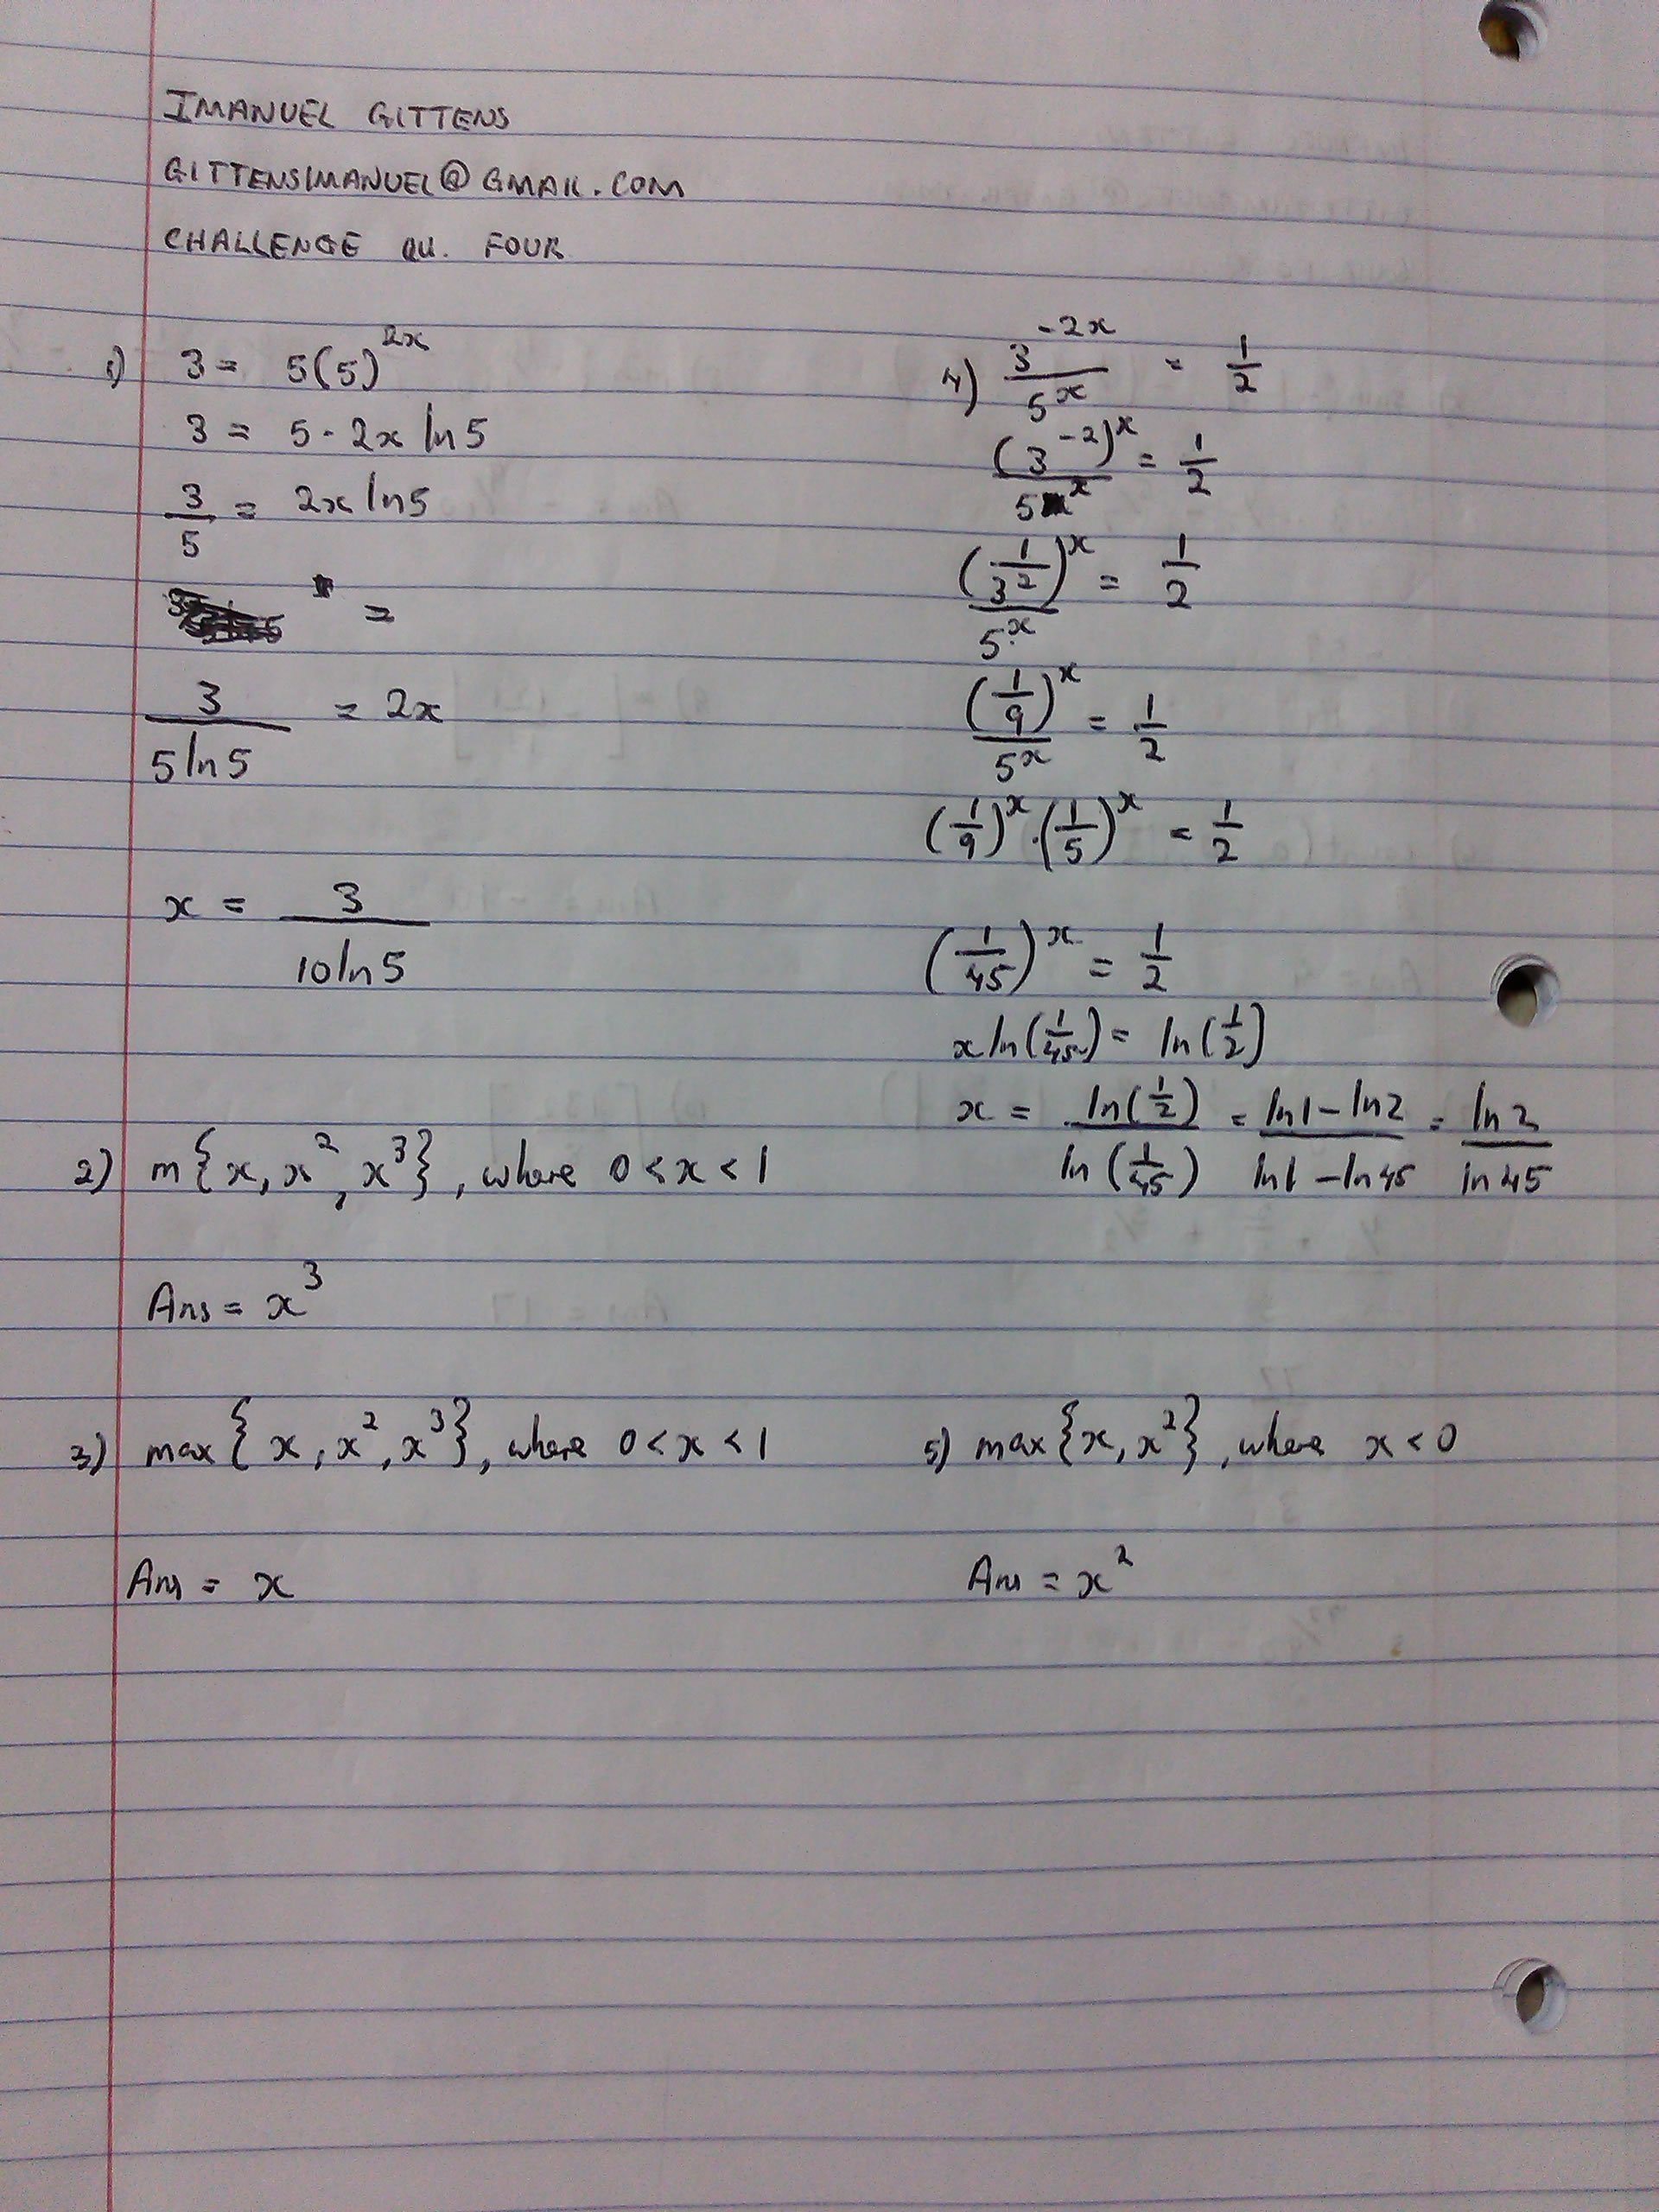 IMANUEL GITTENS
GITTENSIMANUEL@GMAIL.COM
CHALLENGE QU. FOUR
1) 3 = 5(5)^2x
3 = 5 · 2x ln 5
3/5 = 2x ln5
=
3/(5 ln 5) = 2x
x = 3/(10 ln 5)
2) m{x, x^2, x^3}, where 0 < x < 1
Ans = x^3
3) max{x, x^2, x^3}, where 0 < x < 1
Ans = x
4) 3^-2x/5^x = 1/2
(3^-2)^x/5^x = 1/2
(1/3^2)^x/5^x = 1/2
(1/9)^x/5^x = 1/2
(1/9)^x · (1/5)^x = 1/2
(1/45)^x = 1/2
x ln(1/45) = ln(1/2)
x = ln(1/2)/ln(1/45) = (ln1 - ln2)/(ln1 - ln45) = ln 2/ln 45
5) max{x, x^2}, where x < 0
Ans = x^2